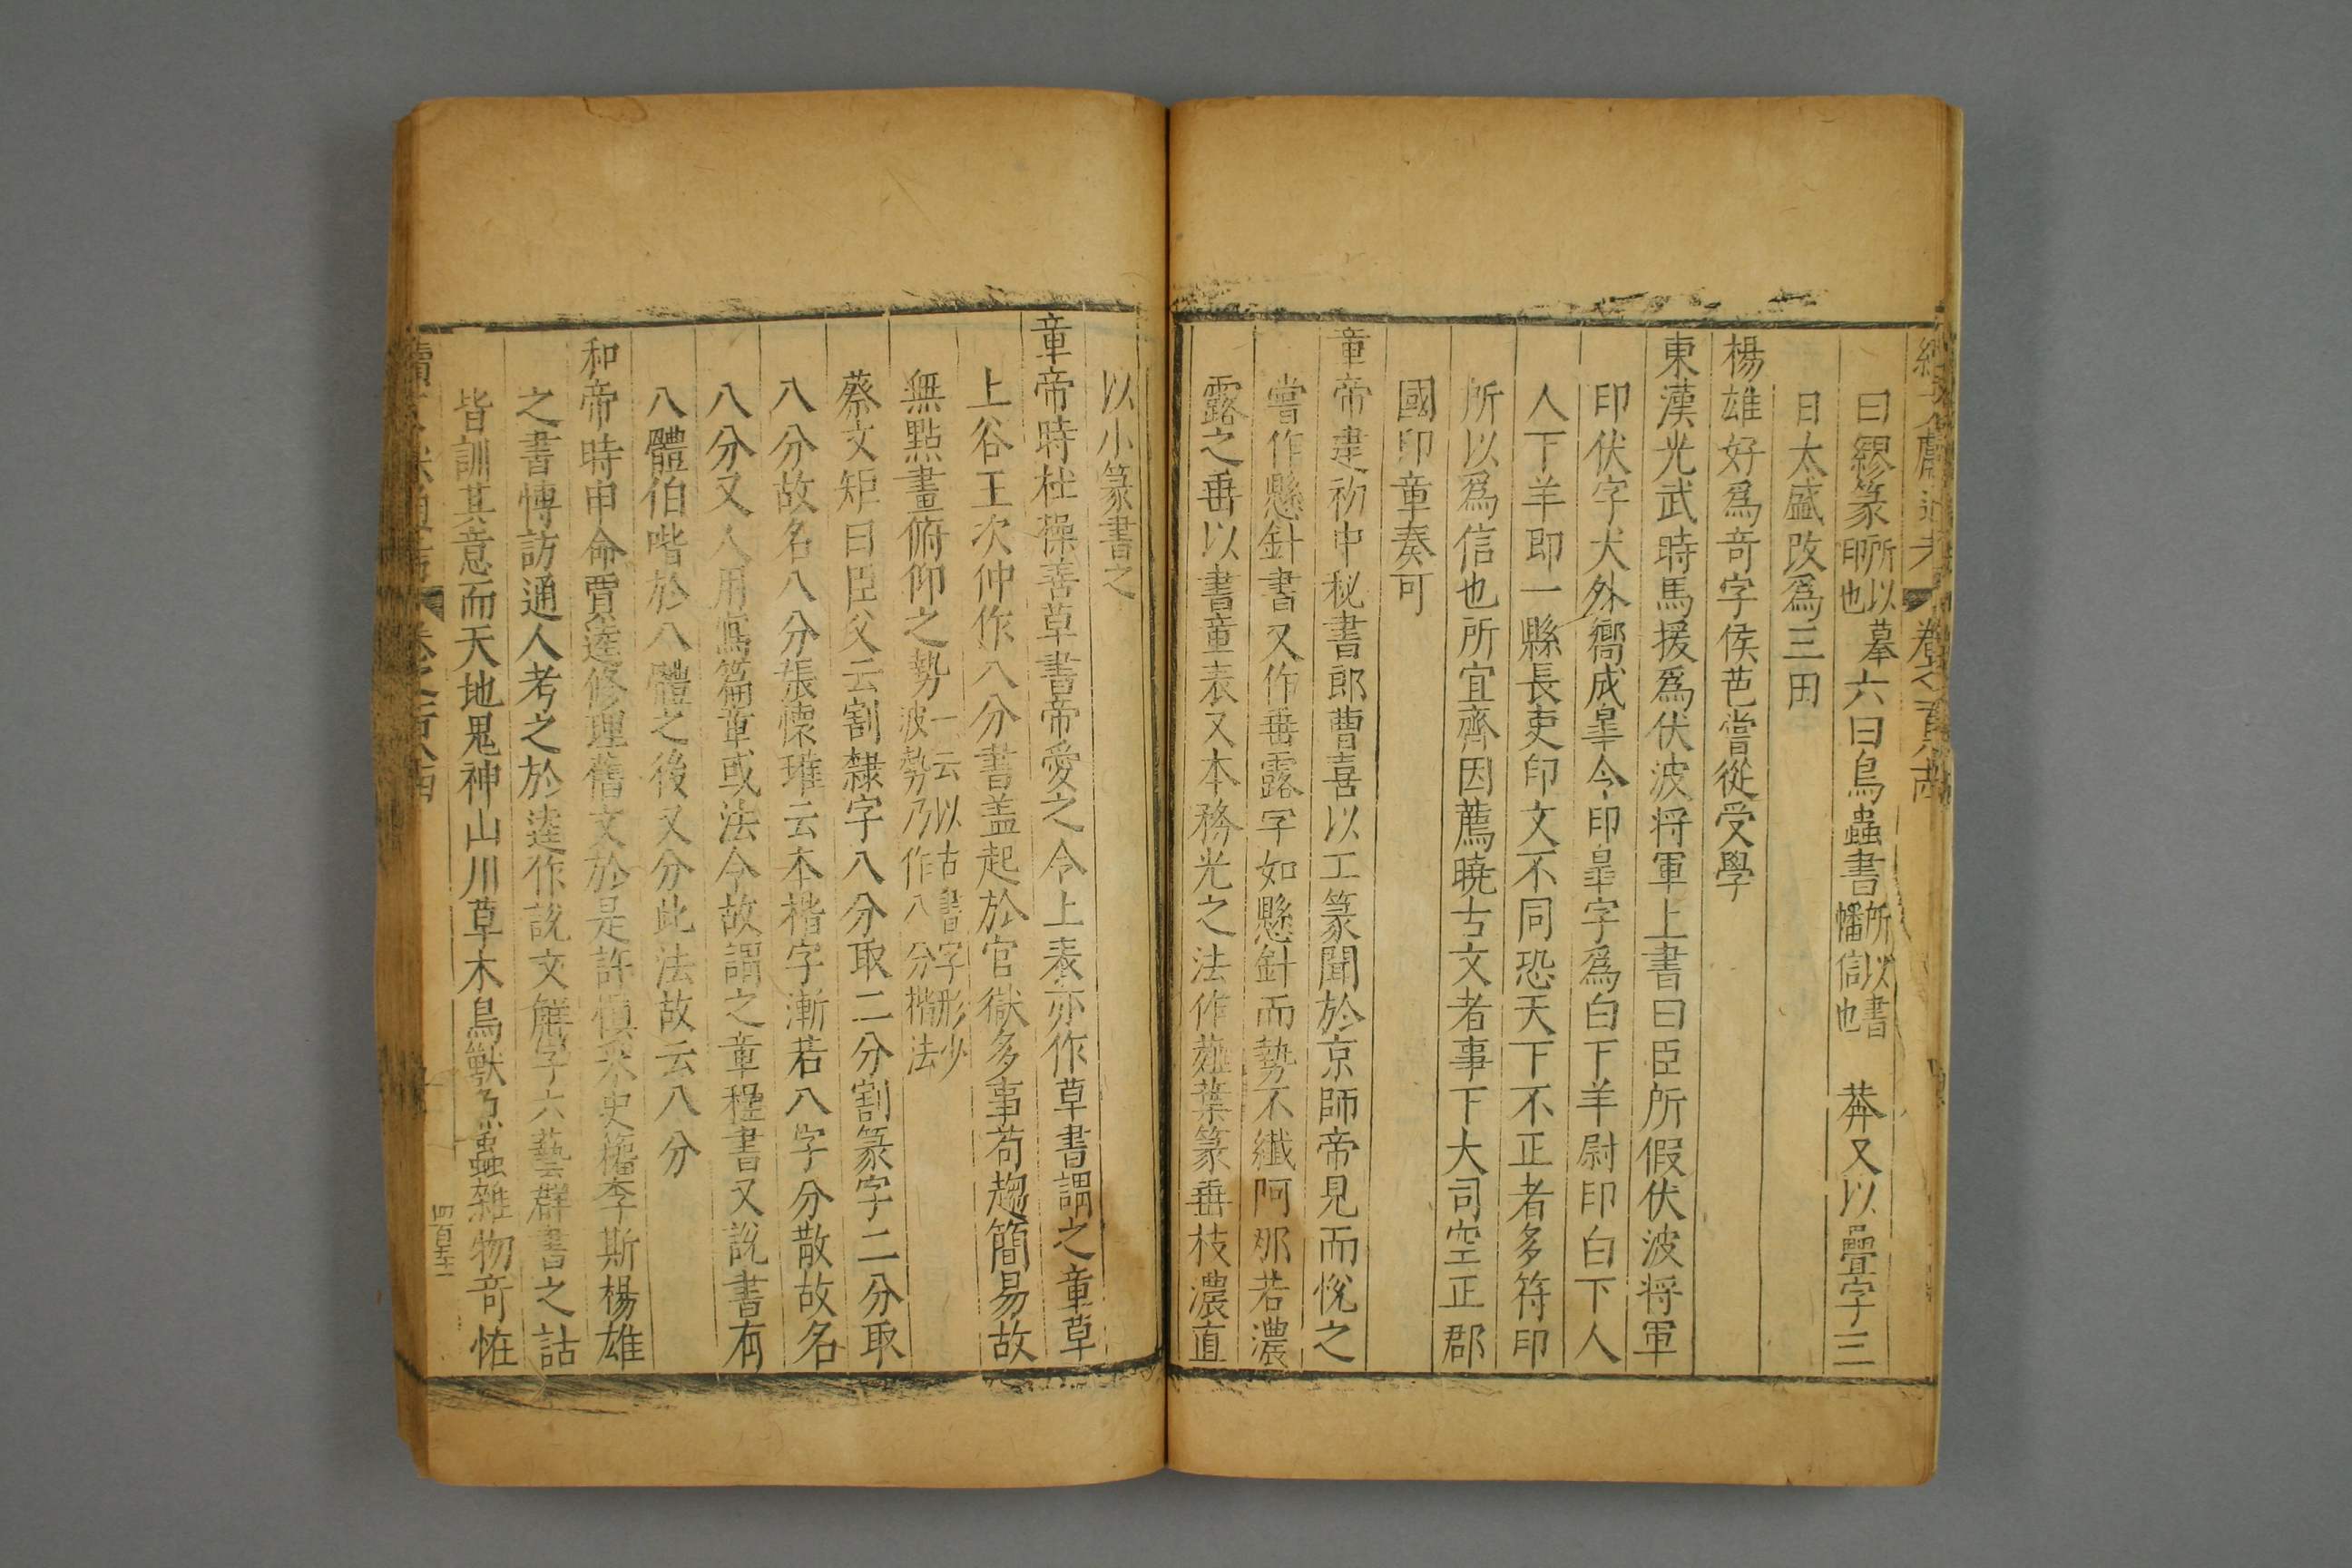 曰繆篆所以印也摹六曰鳥蟲書所以書幡信也 莽又以疊字三
日太盛改爲三田
楊雄好爲竒字侯芭嘗從受學
東漢光武時馬援爲伏波将軍上書曰臣所假伏波将軍
印伏字犬外嚮成皐令印皐字爲白下羊尉印白下人
人下羊即一縣長吏印文不同恐天下不正者多符印
所以爲信也所宜齊因薦曉古文者事下大司空正郡
國印章奏可
章帝建初中秘書郎曹喜以工篆聞於京師帝見而悅之
嘗作懸針書又作垂露字如懸針而勢不纖阿那若濃
露之垂以書章表又本務光之法作薤葉篆垂枝濃直
以小篆書之
章帝時杜操善草書帝愛之令上表亦作草書謂之章草
上谷王次仲作八分書盖起於官獄多事苟趨簡易故
無點畫俯仰之勢一云以古書字形少波勢乃作八分楷法
蔡文矩曰臣父云割隸字八分取二分割篆字二分取
八分故名八分張懷瓘云本楷字漸若八字分散故名
八分又人用寫篇章或法令故謂之章程書又說書有
八體伯喈於八體之後又分此法故云八分
和帝時申命賈逵修理舊文於是許慎采史籀李斯楊雄
之書愽訪通人考之於逵作說文解字六藝群書之詁
皆訓其意而天地鬼神山川草木鳥獸䖵蟲雜物竒恠